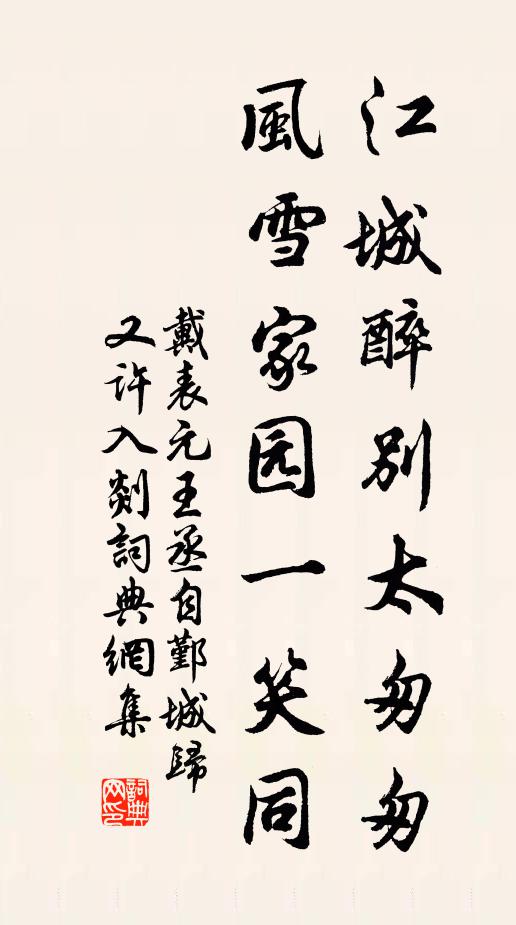 江城醉別太匆匆
風雪家园一笑同
戴表元王丞自鄞城歸
又許入剡詞典網集
詞典
网印